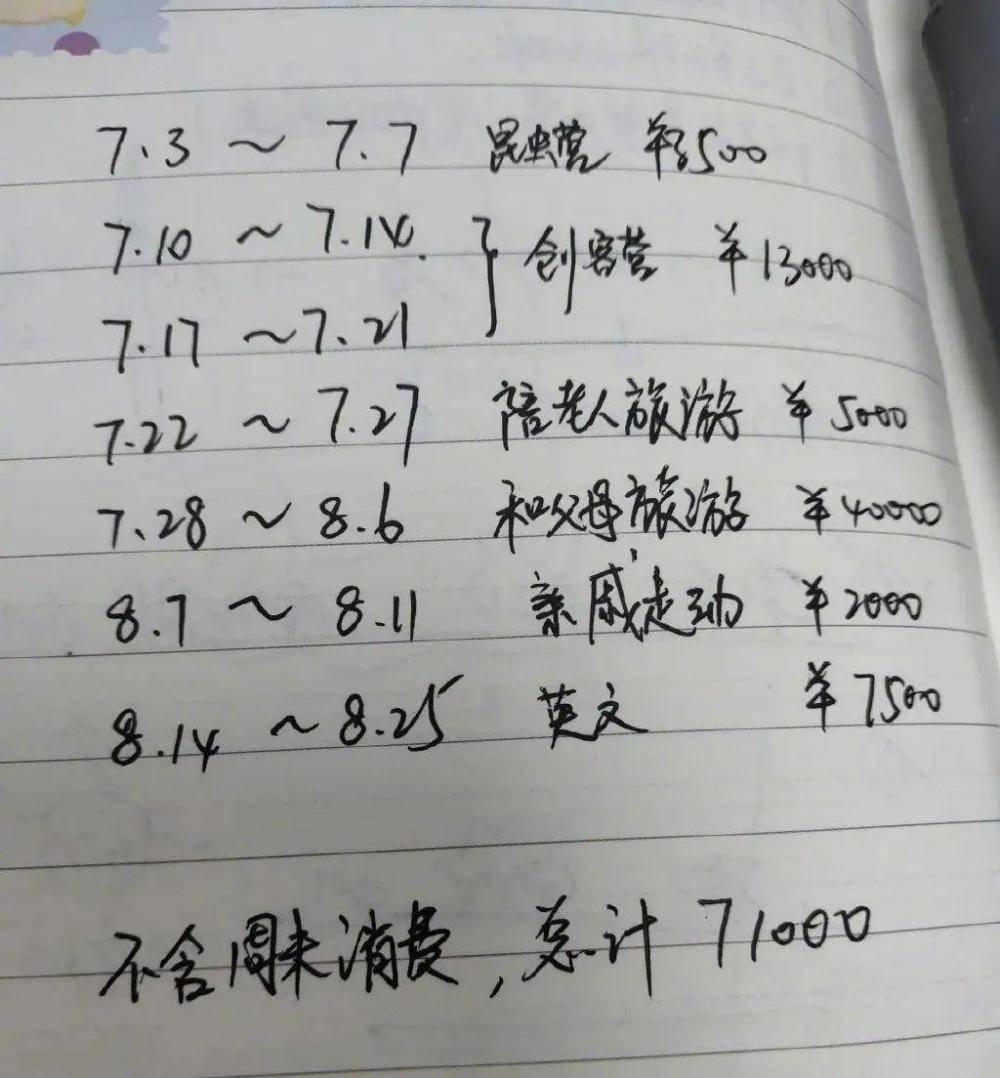 7.3 ~ 7.7 昆虫营 ¥3500
7.10 ~ 7.14.
} 创客营 ¥13000
7.17 ~ 7.21
7.22 ~ 7.27 陪老人旅游 ¥5000
7.28 ~ 8.6 和父母旅游 ¥40000
8.7 ~ 8.11 亲戚走动 ¥2000
8.14 ~ 8.25 英文 ¥7500
不含周末消费,总计 71000